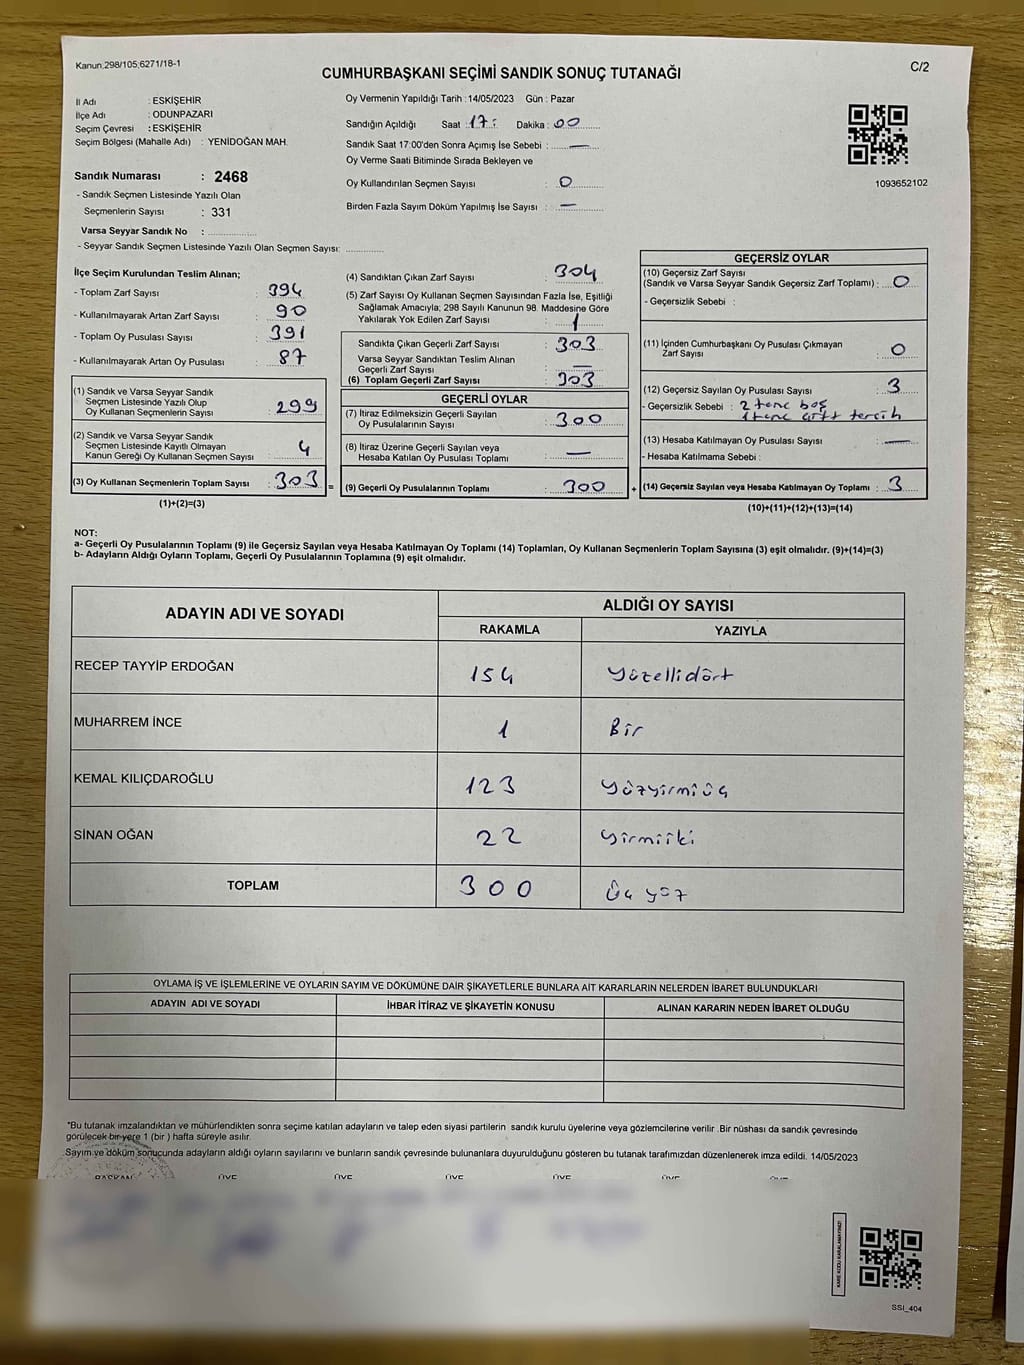 Kanun:298/105;6271/18-1
C/2
CUMHURBAŞKANI SEÇİMİ SANDIK SONUÇ TUTANAĞI
İl Adı : ESKİŞEHİR
İlçe Adı : ODUNPAZARI
Seçim Çevresi : ESKİŞEHİR
Seçim Bölgesi (Mahalle Adı) : YENİDOĞAN MAH.
Sandık Numarası : 2468
- Sandık Seçmen Listesinde Yazılı Olan
Seçmenlerin Sayısı : 331
Varsa Seyyar Sandık No :
- Seyyar Sandık Seçmen Listesinde Yazılı Olan Seçmen Sayısı:
Oy Vermenin Yapıldığı Tarih : 14/05/2023 Gün : Pazar
Sandığın Açıldığı Saat : 17: Dakika : 00
Sandık Saat 17:00'den Sonra Açımış İse Sebebi : —
Oy Verme Saati Bitiminde Sırada Bekleyen ve
Oy Kullandırılan Seçmen Sayısı : 0
Birden Fazla Sayım Döküm Yapılmış İse Sayısı : —
1093652102
İlçe Seçim Kurulundan Teslim Alınan;
- Toplam Zarf Sayısı : 394
- Kullanılmayarak Artan Zarf Sayısı : 90
- Toplam Oy Pusulası Sayısı : 391
- Kullanılmayarak Artan Oy Pusulası : 87
(1) Sandık ve Varsa Seyyar Sandık
Seçmen Listesinde Yazılı Olup
Oy Kullanan Seçmenlerin Sayısı : 299
(2) Sandık ve Varsa Seyyar Sandık
Seçmen Listesinde Kayıtlı Olmayan
Kanun Gereği Oy Kullanan Seçmen Sayısı : 4
(3) Oy Kullanan Seçmenlerin Toplam Sayısı : 303 =
(1)+(2)=(3)
(4) Sandıktan Çıkan Zarf Sayısı : 304
(5) Zarf Sayısı Oy Kullanan Seçmen Sayısından Fazla İse, Eşitliği
Sağlamak Amacıyla; 298 Sayılı Kanunun 98. Maddesine Göre
Yakılarak Yok Edilen Zarf Sayısı : 1
Sandıkta Çıkan Geçerli Zarf Sayısı : 303
Varsa Seyyar Sandıktan Teslim Alınan
Geçerli Zarf Sayısı : —
(6) Toplam Geçerli Zarf Sayısı : 303
GEÇERLİ OYLAR
(7) İtiraz Edilmeksizin Geçerli Sayılan
Oy Pusulalarının Sayısı : 300
(8) İtiraz Üzerine Geçerli Sayılan veya
Hesaba Katılan Oy Pusulası Toplamı : —
(9) Geçerli Oy Pusulalarının Toplamı : 300 +
GEÇERSİZ OYLAR
(10) Geçersiz Zarf Sayısı
(Sandık ve Varsa Seyyar Sandık Geçersiz Zarf Toplamı) : 0
- Geçersizlik Sebebi :
(11) İçinden Cumhurbaşkanı Oy Pusulası Çıkmayan
Zarf Sayısı : 0
(12) Geçersiz Sayılan Oy Pusulası Sayısı : 3
- Geçersizlik Sebebi : 2 tane boş
1 tane çift tercih
(13) Hesaba Katılmayan Oy Pusulası Sayısı : —
- Hesaba Katılmama Sebebi :
(14) Geçersiz Sayılan veya Hesaba Katılmayan Oy Toplamı : 3
(10)+(11)+(12)+(13)=(14)
NOT:
a- Geçerli Oy Pusulalarının Toplamı (9) ile Geçersiz Sayılan veya Hesaba Katılmayan Oy Toplamı (14) Toplamları, Oy Kullanan Seçmenlerin Toplam Sayısına (3) eşit olmalıdır. (9)+(14)=(3)
b- Adayların Aldığı Oyların Toplamı, Geçerli Oy Pusulalarının Toplamına (9) eşit olmalıdır.
ADAYIN ADI VE SOYADI
ALDIĞI OY SAYISI
RAKAMLA YAZIYLA
RECEP TAYYİP ERDOĞAN 154 Yüzellidört
MUHARREM İNCE 1 Bir
KEMAL KILIÇDAROĞLU 123 Yüzyirmiüç
SİNAN OĞAN 22 Yirmiiki
TOPLAM 300 Üç yüz
OYLAMA İŞ VE İŞLEMLERİNE VE OYLARIN SAYIM VE DÖKÜMÜNE DAİR ŞİKAYETLERLE BUNLARA AİT KARARLARIN NELERDEN İBARET BULUNDUKLARI
ADAYIN ADI VE SOYADI İHBAR İTİRAZ VE ŞİKAYETİN KONUSU ALINAN KARARIN NEDEN İBARET OLDUĞU
"Bu tutanak imzalandıktan ve mühürlendikten sonra seçime katılan adayların ve talep eden siyasi partilerin sandık kurulu üyelerine veya gözlemcilerine verilir .Bir nüshası da sandık çevresinde
görülecek bir yere 1 (bir ) hafta süreyle asılır.
Sayım ve döküm sonucunda adayların aldığı oyların sayılarını ve bunların sandık çevresinde bulunanlara duyurulduğunu gösteren bu tutanak tarafımızdan düzenlenerek imza edildi. 14/05/2023
BAŞKAN ÜYE ÜYE ÜYE ÜYE ÜYE ÜYE
KARE KODU KARALAMAYINIZ!
SSI_404